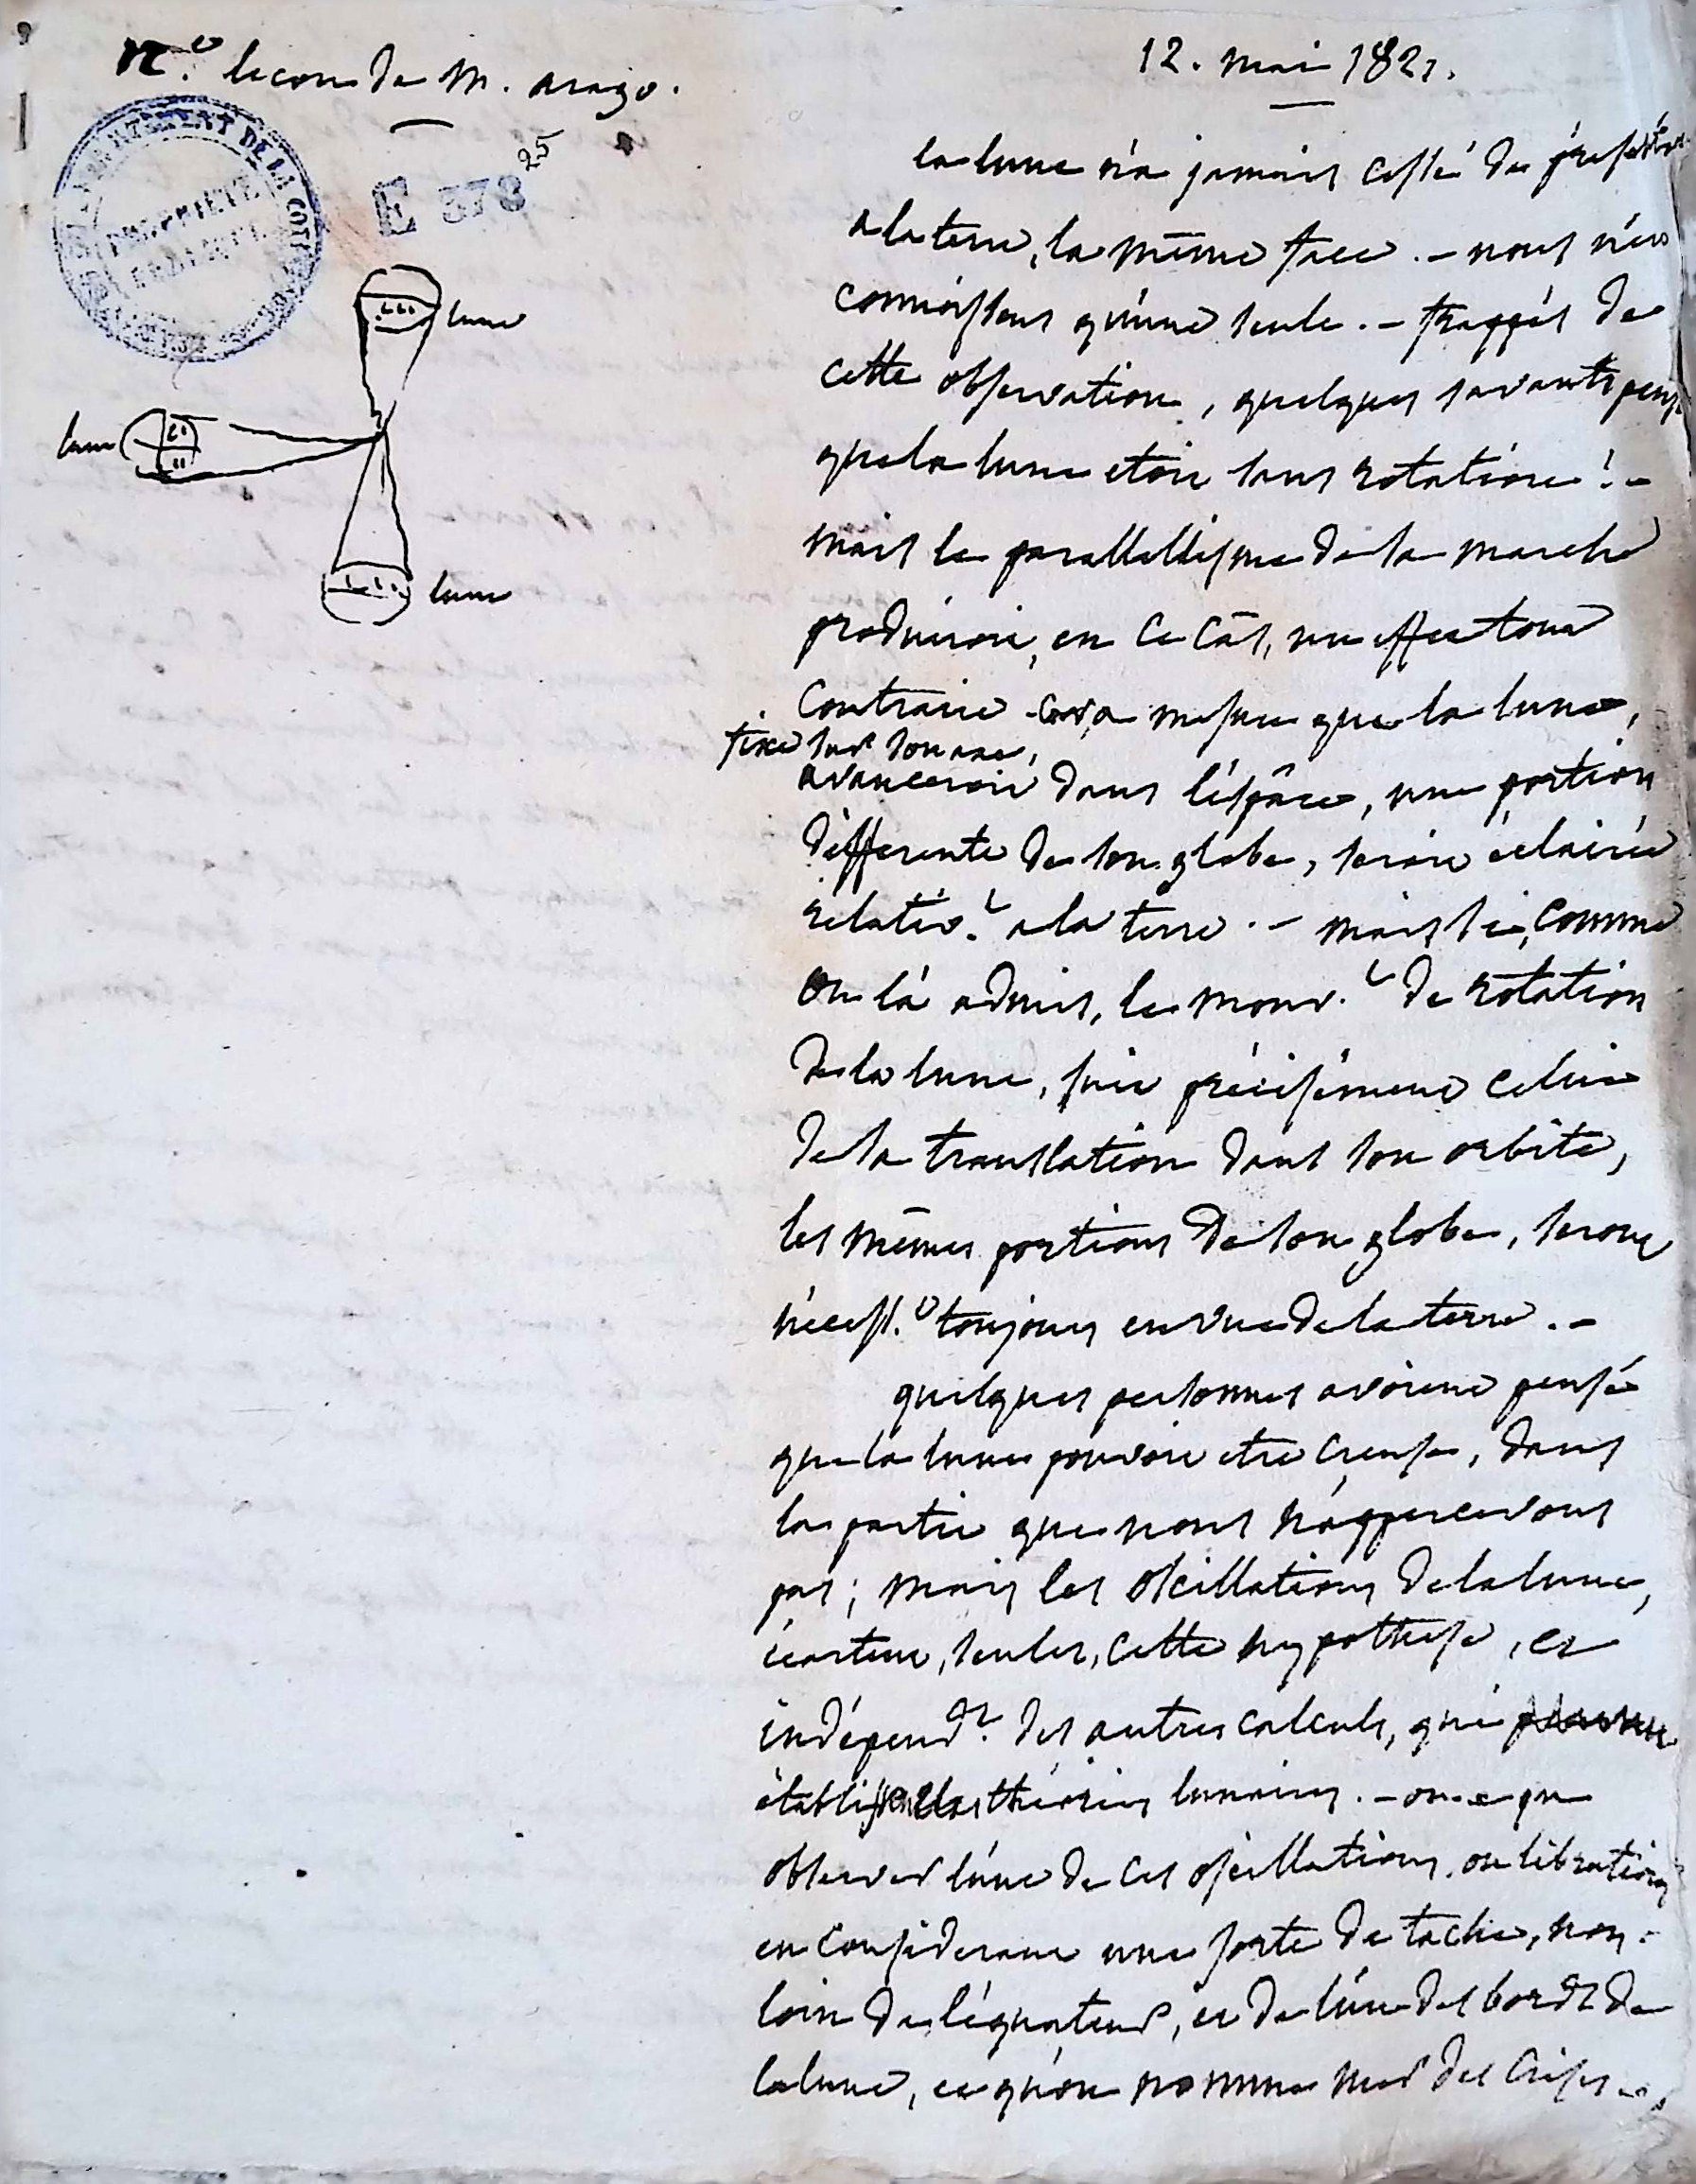 leçon de M. arago.
12. mai 1821.
DE LA COTE
PROPRIETE
E 378
25
lune
lune
lune
la lune n'a jamais cessé de présenter
a la terre, la même face. - nous n'en
connoissons qu'une seule. - frappés de
cette observation, quelques savants
que la lune etoit sans rotation! -
mais le parallellisme de sa marche
produiroit, en ce câs, un effet tout
contraire car a mesure que la lune,
fixe sur son axe,
avanceroit dans l'éspâce, une portion
différente de son globe, seroit éclairée
relativ.t a la terre. - mais si, comme
on l'a admis, le mouv.t de rotation
de la lune, suit précisément celui
de sa translation dans son orbite,
les mêmes portions de son globe, seront
nécess.t toujours en vue de la terre. -
quelques personnes avoient pensé
que la lune pouvoit etre creuse, dans
la partie que nous n'appercevons
pas; mais les oscillations de la lune,
écartent, seules, cette hypothese, et
indépend.t des autres calculs, qui
établissent les théories lunaires. - on a pu
observer l'une de ces oscillations, ou librations
en considerant une sorte de tache, non-
loin de l'équateur, et de l'un des bords de
la lune, ce qu'on nomme mer des Crises